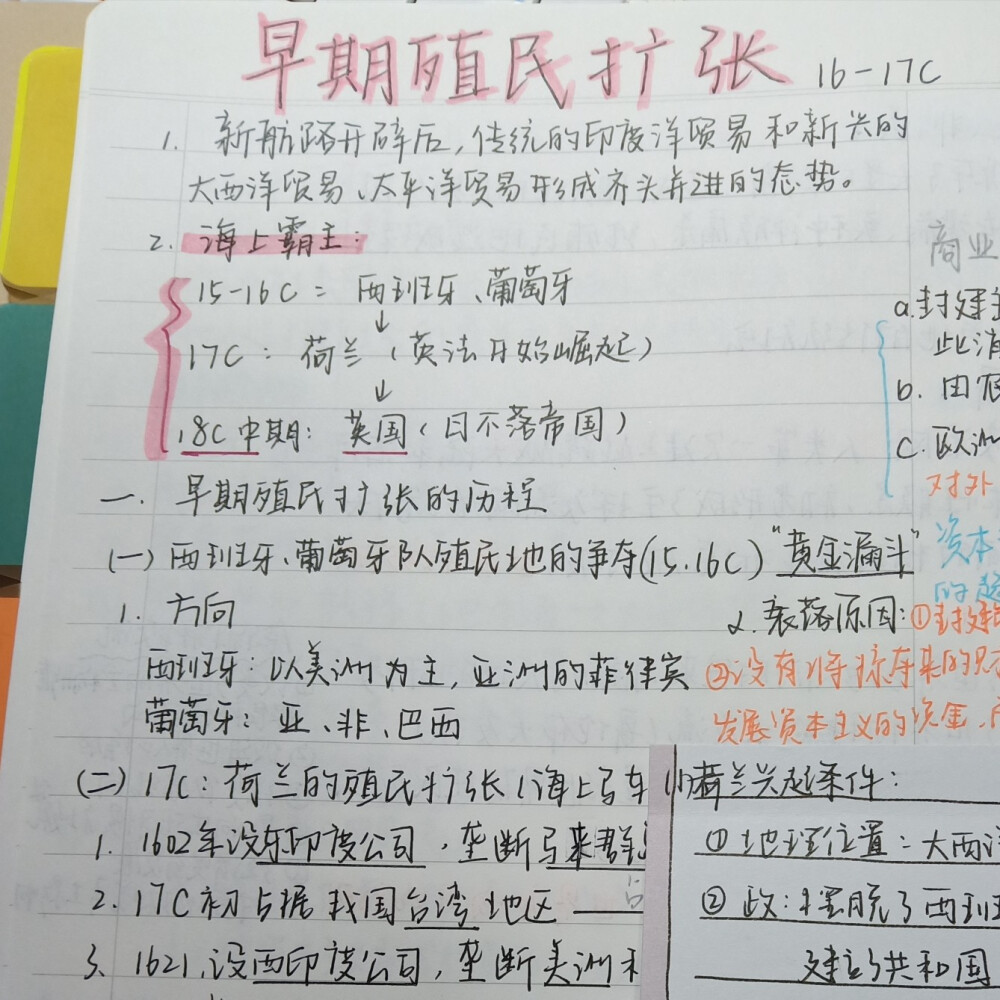 早期殖民扩张 16-17C
1. 新航路开辟后,传统的印度洋贸易和新兴的
大西洋贸易、太平洋贸易形成齐头并进的态势。
2. 海上霸主:
15-16C: 西班牙、葡萄牙
↓
17C: 荷兰(英法开始崛起)
↓
18C中期: 英国(日不落帝国)
一. 早期殖民扩张的历程
(一) 西班牙、葡萄牙队殖民地的争夺(15.16C) "黄金漏斗"
1. 方向
西班牙: 以美洲为主, 亚洲的菲律宾
葡萄牙: 亚、非、巴西
2. 衰落原因: ①封建
②没有将掠夺来的
发展资本主义的资金
(二) 17C: 荷兰的殖民扩张(海上马车
1. 1602年设东印度公司, 垄断马来群
2. 17C初占据我国台湾地区
3. 1621, 设西印度公司, 垄断美洲
(1)荷兰兴起条件:
① 地理位置: 大西
② 政: 摆脱了西班
建立了共和国
商业
a. 封建
此消
b. 由
c. 欧洲
对外
资本
的